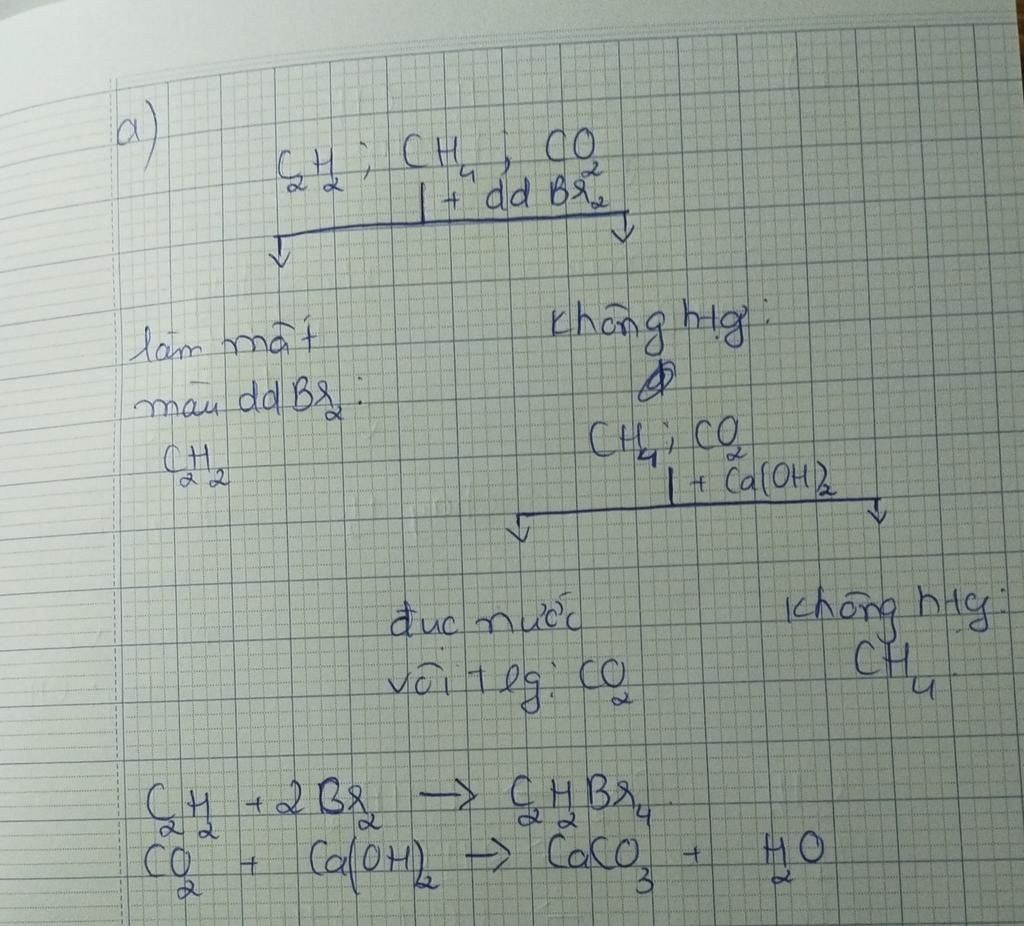 a)
C₂H₂ ; CH₄ ; CO₂
+ dd Br₂
làm mất
màu dd Br₂ :
C₂H₂
không htg :
CH₄ ; CO₂
+ Ca(OH)₂
đục nước
vôi tlg: CO₂
không htg:
CH₄
C₂H₂ + 2Br₂ → C₂H₂Br₄
CO₂ + Ca(OH)₂ → CaCO₃ + H₂O